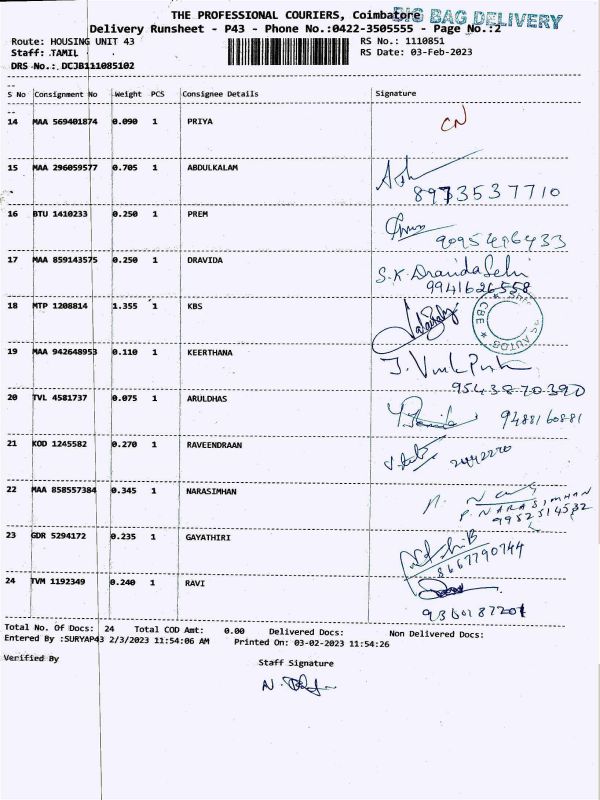 THE PROFESSIONAL COURIERS, Coimbatore BIG BAG DELIVERY
Delivery Runsheet - P43 - Phone No.:0422-3505555 - Page No.:2
Route: HOUSING UNIT 43 RS No.: 1110851
Staff: TAMIL RS Date: 03-Feb-2023
DRS No.: DCJB111085102
S No Consignment No Weight PCS Consignee Details Signature
14 MAA 569401874 0.090 1 PRIYA CN
15 MAA 296059577 0.705 1 ABDULKALAM
8973537710
16 BTU 1410233 0.250 1 PREM
9095496433
17 MAA 859143575 0.250 1 DRAVIDA S.K. Dravida Selvi
9941626558
18 MTP 1208814 1.355 1 KBS
CBE AUTOS
19 MAA 942648953 0.110 1 KEERTHANA
9543870390
20 TVL 4581737 0.075 1 ARULDHAS 9488160881
21 KOD 1245582 0.270 1 RAVEENDRAAN
22 MAA 858557384 0.345 1 NARASIMHAN
P. NARASIMHAN
9952514532
23 GDR 5294172 0.235 1 GAYATHIRI
8667790744
24 TVM 1192349 0.240 1 RAVI
9360187201
Total No. Of Docs: 24 Total COD Amt: 0.00 Delivered Docs: Non Delivered Docs:
Entered By :SURYAP43 2/3/2023 11:54:06 AM Printed On: 03-02-2023 11:54:26
Verified By
Staff Signature